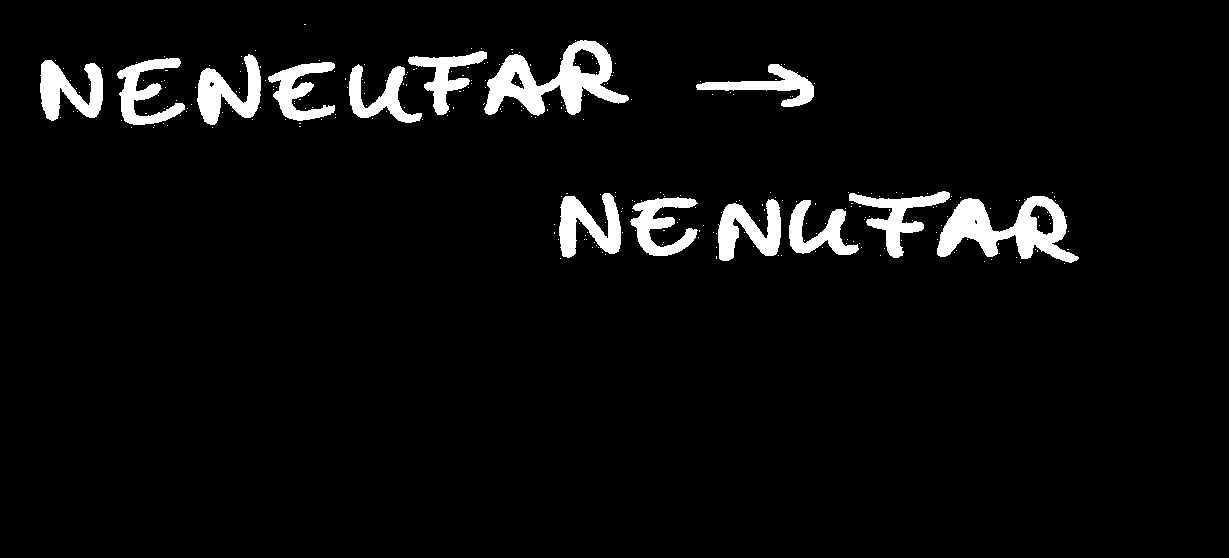 NENEUFAR →
NENUFAR